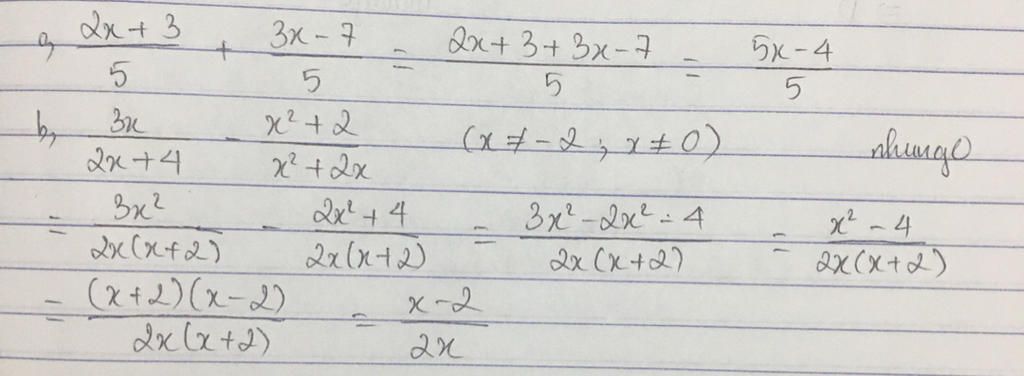 a, (2x + 3)/5 + (3x - 7)/5 = (2x + 3 + 3x - 7)/5 = (5x - 4)/5
b, 3x/(2x + 4) - (x² + 2)/(x² + 2x) (x ≠ -2 ; x ≠ 0) nhungO
= 3x²/(2x(x+2)) - (2x² + 4)/(2x(x+2)) = (3x² - 2x² - 4)/(2x(x+2)) = (x² - 4)/(2x(x+2))
= ((x+2)(x-2))/(2x(x+2)) = (x-2)/(2x)